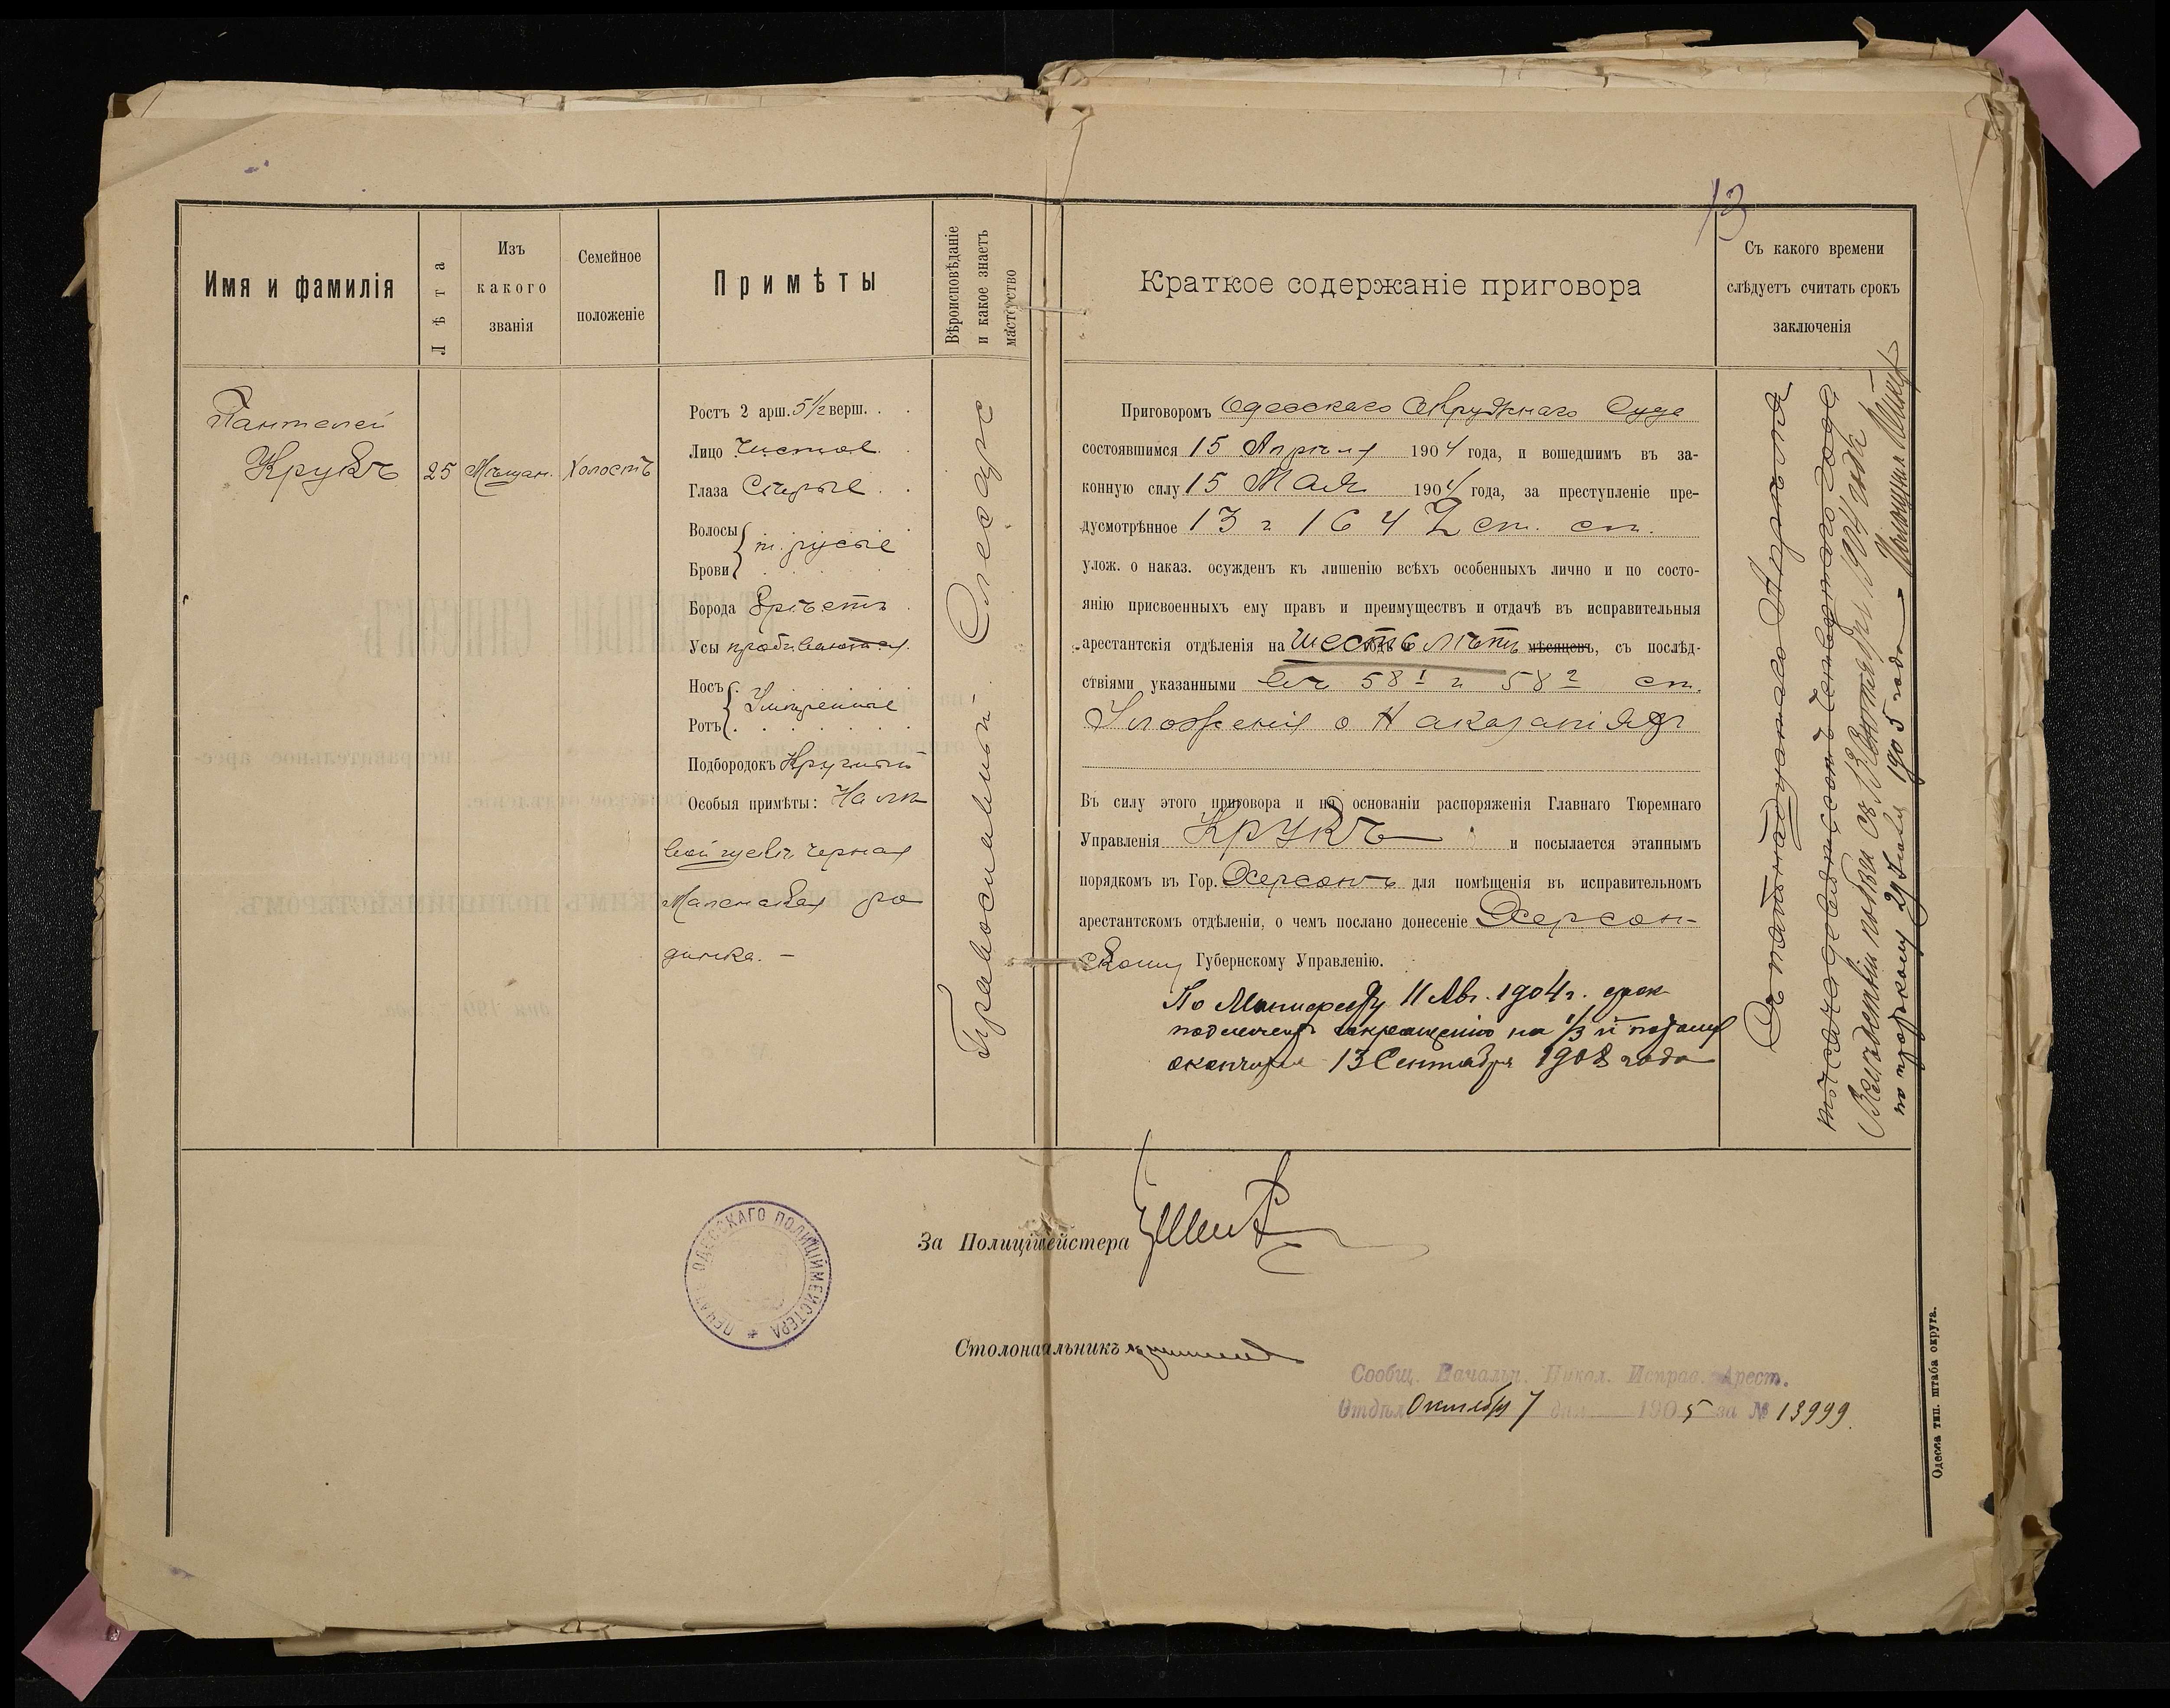 13
Имя и фамилія
Лѣта
Изъ
какого
званія
Семейное
положеніе
Примѣты
Вѣроисповѣданіе
и какое знаетъ
мастерство
Пантелей
Крукъ
25
Мѣщан.
Холостъ
Ростъ 2 арш. 5 1/2 верш.
Лицо Чистое
Глаза Сѣрые
Волосы
т. русые
Брови
Борода брѣетъ
Усы пробиваются
Носъ
Умѣренные
Ротъ
Подбородокъ Круглый
Особыя примѣты: На лѣ
вой щекѣ черная
Маленькая ро
динка. —
Православный. Слесарь
Краткое содержаніе приговора
Съ какого времени
слѣдуетъ считать срокъ
заключенія
Приговоромъ Одесскаго Окружнаго Суда
состоявшимся 15 Апрѣля 1904 года, и вошедшимъ въ за-
конную силу 15 Мая 1904 года, за преступленіе пре-
дусмотрѣнное 13 и 1642 ст. ст.
улож. о наказ. осужденъ къ лишенію всѣхъ особенныхъ лично и по состо-
янію присвоенныхъ ему правъ и преимуществъ и отдачѣ въ исправительныя
арестантскія отдѣленія на шесть лѣтъ мѣсяцевъ, съ послѣд-
ствіями указанными въ 58¹ и 58² ст.
Уложенія о Наказаніяхъ
Въ силу этого приговора и на основаніи распоряженія Главнаго Тюремнаго
Управленія Крукъ и посылается этапнымъ
порядкомъ въ Гор. Херсонъ для помѣщенія въ исправительномъ
арестантскомъ отдѣленіи, о чемъ послано донесеніе Херсон-
скому Губернскому Управленію.
По Манифесту 11 Авг. 1904 г. срок
подлежит сокращению на 1/3 и потому
окончится 13 Сентября 1908 года
Съ пятнадцатаго Апрѣля
тысяча девятьсотъ четвертаго года
Вслѣдствіи побѣга съ 13 Сентября 1904 года
по протоколу 29 Іюля 1905 года
За Полиціймейстера
Столоначальникъ
ПЕЧАТЬ ОДЕССКАГО ПОЛИЦІЙМЕЙСТЕРА
Сообщ. Начальн. Никол. Исправ. Арест.
Отдѣл Октября 7 дня 1905 за № 13999.
Одесса тип. штаба округа.